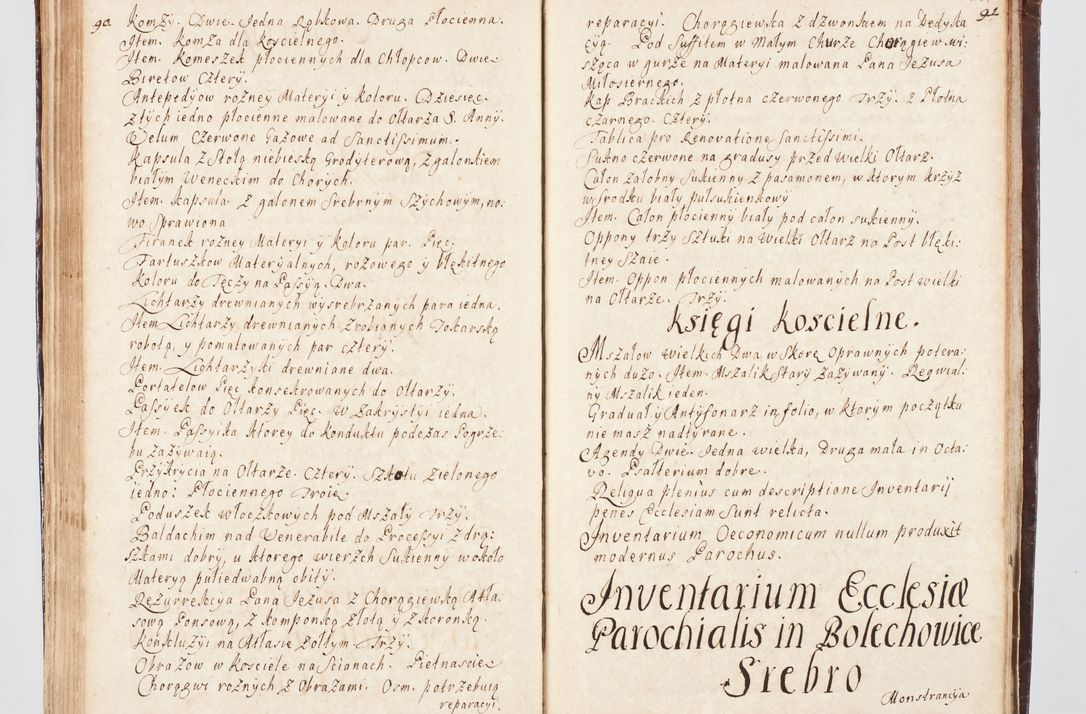 90.
Komży. Dwie. Jedna Rąbkowa. Druga Płocienna.
Item. Komża dla Koscielnego.
Item. Komeszek płociennych dla Chłopcow. Dwie
Biretow Cztery.
Antepedyow rożney Materyi y Koloru. Dziesięc.
z tych iedno płocienne malowane do Ołtarza S. Anny.
Velum Czerwone Gazowe ad Sanctissimum.
Kapsula z Stołą niebieską Grodyterową, z galonkiem
białym Weneckim do Chorych.
Item. Kapsula z galonem Srebrnym Szychowym, no-
wo Sprawiona
Firanek rożney Materyi y Koloru par. Pięc.
Fartuszkow Materyalnych, rożowego y błękitnego
Koloru do Tęczy na Passyą. Dwa.
Lichtarzy drewnianych wysrebrzanych para iedna.
Item Lichtarzy drewnianych Zrobionych Tokarską
robotą, y pomalowanych par cztery.
Item. Lichtarzyki drewniane dwa.
Portatelow Pięc Konsekrowanych do Ołtarzy.
Passyek do Ołtarzy Pięc. W Zakrystyi iedna.
Item. Passyika ktorey do Konduktu podczas Pogrze-
bu zażywaią.
Przykrycia na Ołtarze. Cztery. Szkotu Zielonego
iedno: Płociennego Troie
Poduszek włoczkowych pod Mszały Trzy.
Baldachim nad Venerabile do Processyi z drą:
szkami dobry, u ktorego wierzch Sukienny wokoło
Materyą pułiedwabną obity.
Rezurrekcya Pana Jezusa z Chorągiewką Atła-
sową Ponsową, z Komponką złotą y z Koronką.
Konkluzyi na Atłasie Zołtym Trzy.
Obrazow w Kosciele na Scianach. Pietnascie
Chorągwi rożnych z Obrazami. Osm. potrzebuią
reparacyi.
91
reparacyi. Chorągiewka z dzwonkiem na Dedyka
cyą. Pod Suffitem w Małym Churze Chorągiew wi-
sząca w gurze na Materyi malowana Pana Jezusa
Miłosiernego.
Kap Brackich z płotna czerwonego Trzy. z Płotna
czarnego. Cztery.
Tablica pro Renovatione Sanctissimi.
Sukno czerwone na gradusy przed Wielki Ołtarz.
Całon żałobny Sukienny z pasamonem, w ktorym krzyż
w Srodku biały pułsukienkowy
Item. Całon płocienny biały pod całon sukienny.
Oppony trzy Sztuki na Wielki Ołtarz na Post błęki:
tney Szaie.
Item. Oppon płociennych malowanych na Post wielki
na Ołtarze. Trzy.
Księgi Koscielne.
Mszałow Wielkich Dwa w Skorę Oprawnych potera-
nych dużo. Item. Mszalik Stary Zażywany. Requial-
ny Mszalik ieden.
Graduał y Antyfonarz in folio, w ktorym początku
nie masz nadtyrane.
Agendy Dwie. Jedna wielka, Druga mała in Octa-
vo. Psalterium dobre.
Reliqua plenius cum descriptione Inventarij
penes Ecclesiam Sunt relicta.
Inventarium Oeconomicum nullum produxit
modernus Parochus.
Inventarium Ecclesiæ
Parochialis in Bolechowice
Srebro
Monstrancya